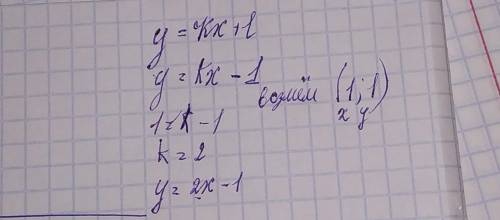 y = kx + 1
y = kx - 1 возмём (1; 1)
x y
1 = k - 1
k = 2
y = 2x - 1